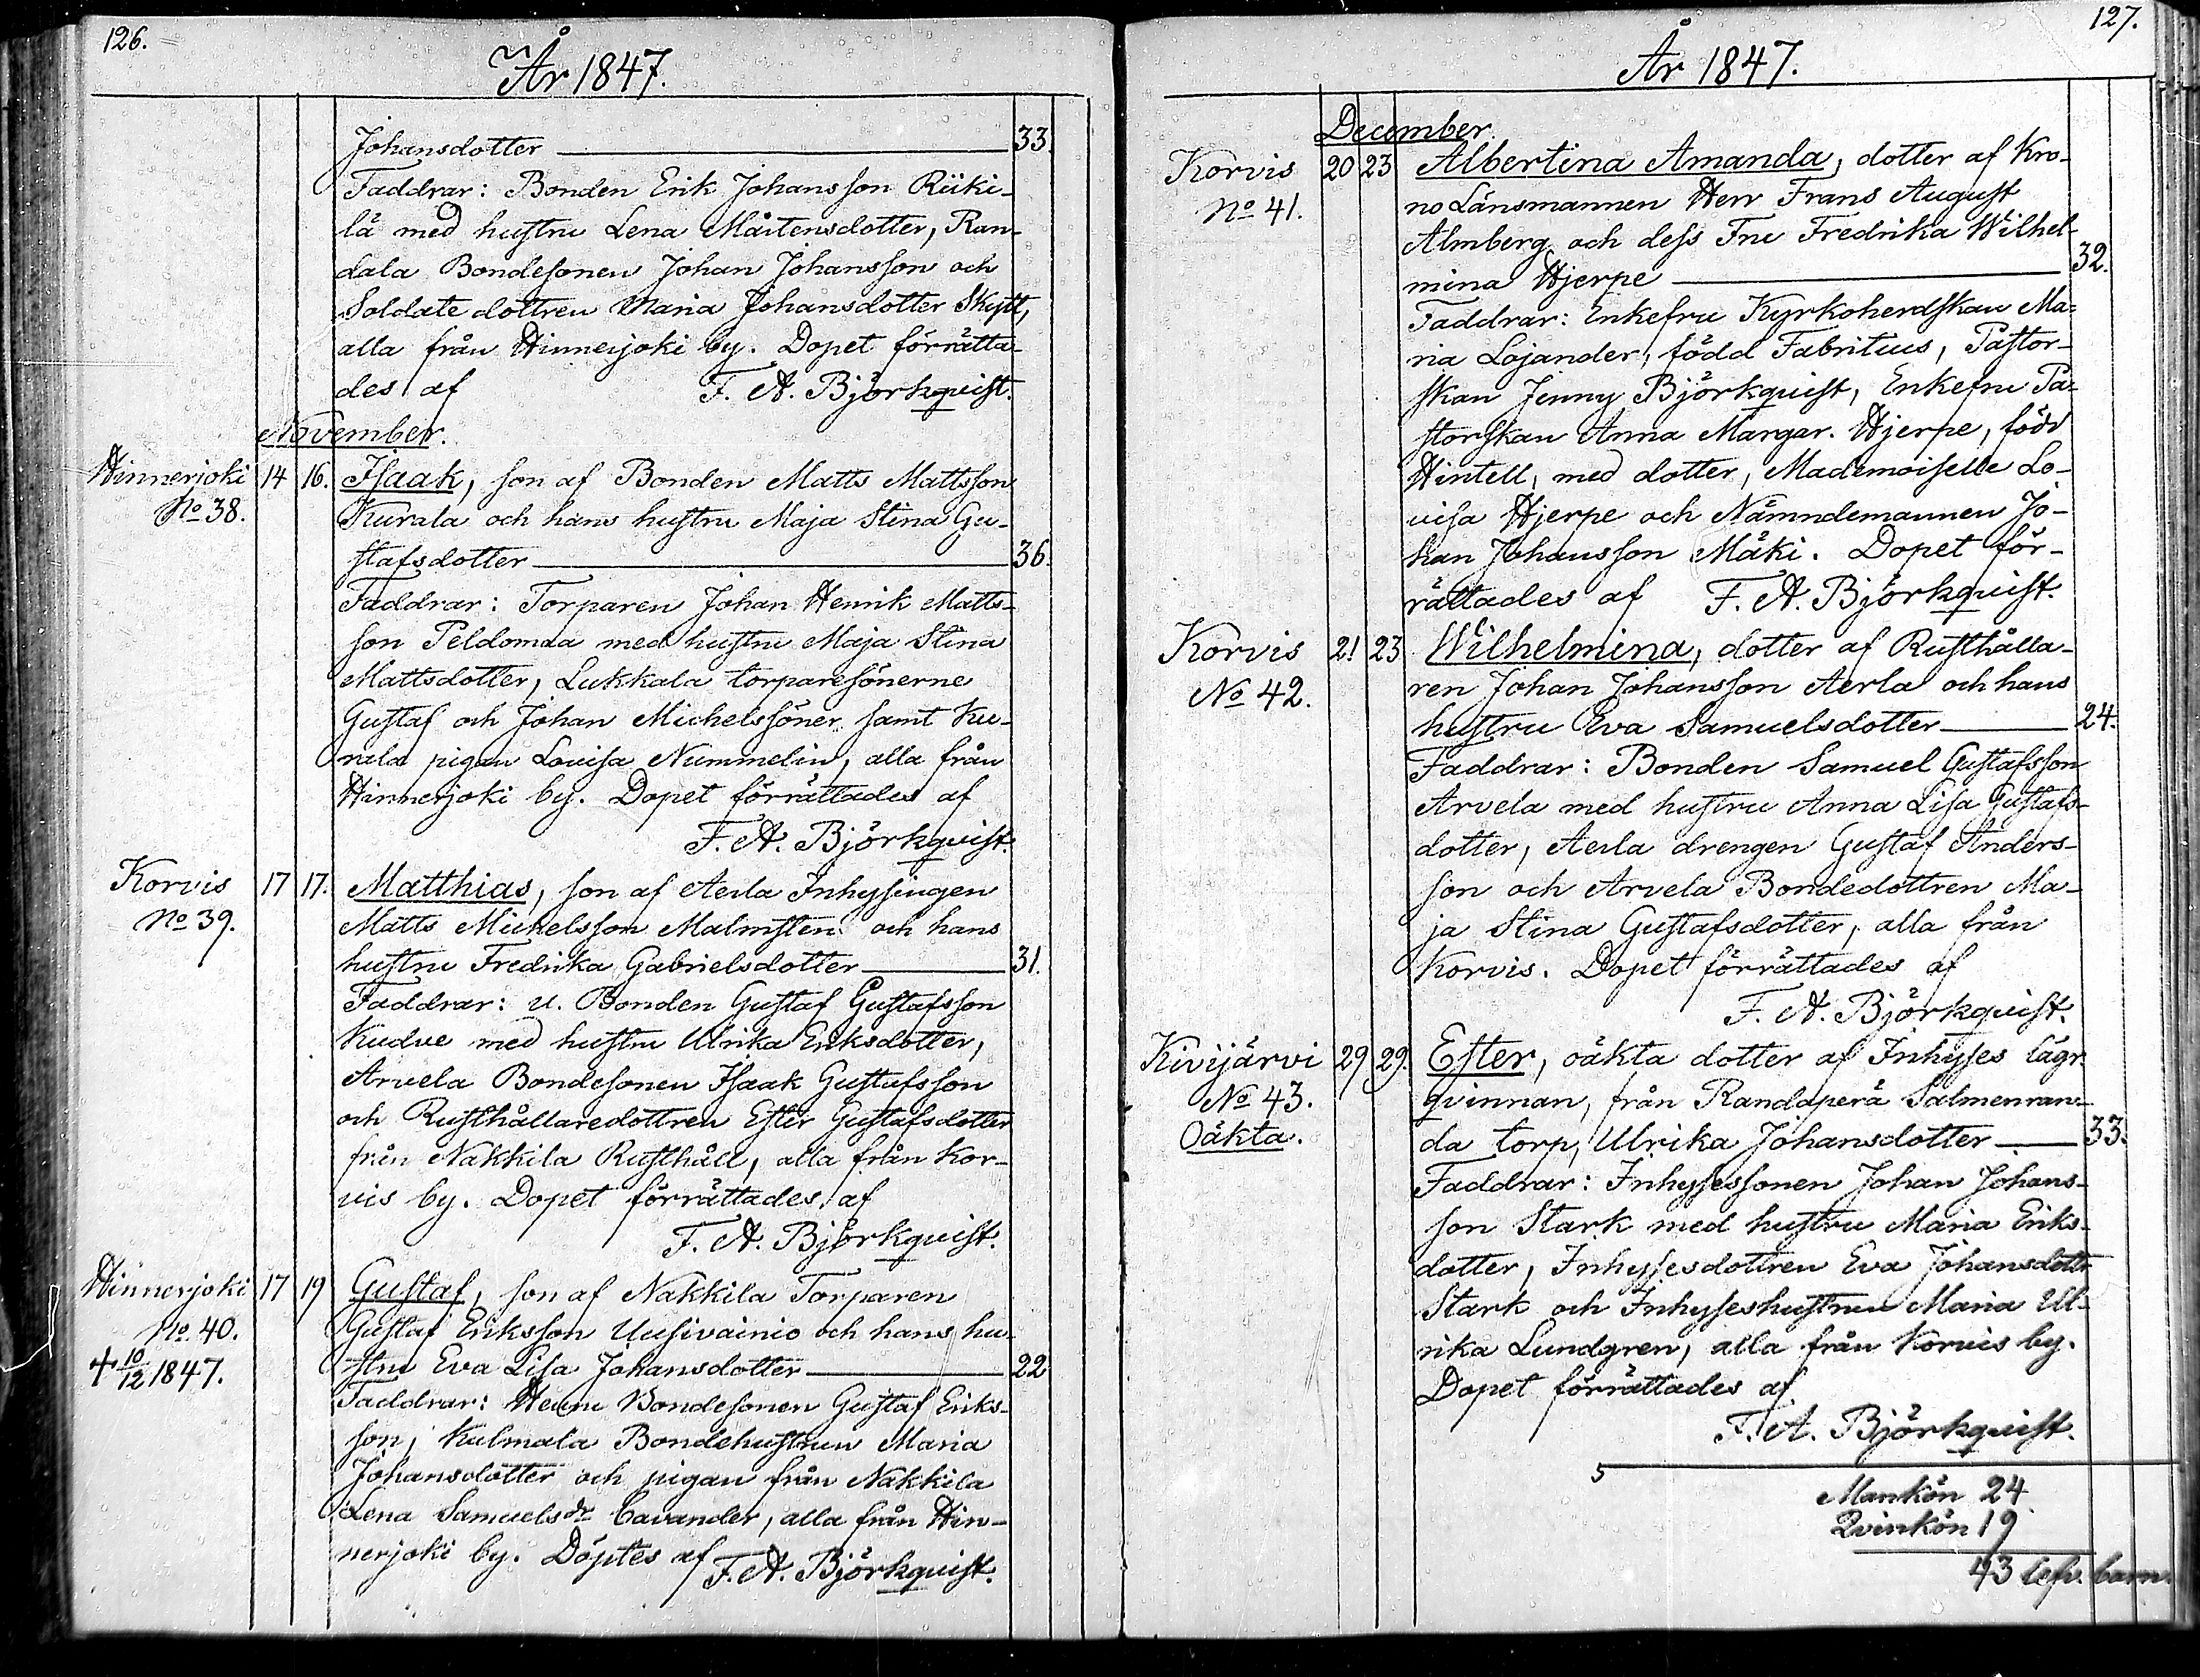 126.
År 1847.
Johansdotter 33.
Faddrar: Bonden Erik Johansson Riiki-
lä med hustru Lena Mårtensdotter, Ran-
dala Bondesonen Johan Johansson och
Soldate dottren Maria Johansdotter Skytt,
alla från Hinnerjoki by. Dopet förrätta-
des af F. A. Björkquist.
November.
Hinnerjoki 14 16. Isaak, son af Bonden Matts Mattsson
No 38. Kurala och hans hustru Maja Stina Gu-
stafsdotter 36.
Faddrar: Torparen Johan Henrik Matts-
son Peldomaa med hustru Maja Stina
Mattsdotter, Lukkala torparesönerne
Gustaf och Johan Michelssöner samt Ku-
rala pigan Lovisa Nummelin, alla från
Hinnerjoki by. Dopet förrättades af
F. A. Björkquist.
Korvis 17 17. Matthias, son af Aerla Inhysingen
No 39. Matts Michelsson Malmsten och hans
hustru Fredrika Gabrielsdotter 31.
Faddrar: u. Bonden Gustaf Gustafsson
Kudue med hustru Ulrika Eriksdotter,
Arvela Bondesonen Isaak Gustafsson
och Rusthållaredottren Ester Gustafsdotter
från Nakkila Rusthåll, alla från Kor-
vis by. Dopet förrättades af
F. A. Björkquist.
Hinnerjoki 17 19 Gustaf, son af Nakkila Torparen
No. 40. Gustaf Eriksson Uusivainio och hans hu-
+ 10/12 1847. stru Eva Lisa Johansdotter 22
Faddrar: Bondesonen Gustaf Eriks-
son, Kulmala Bondehustrun Maria
Johansdotter och pigan från Nakkila
Lena Samuelsdr Cavander, alla från Hin-
nerjoki by. Döptes af F. A. Björkquist.
127.
År 1847.
December.
Korvis 20 23 Albertina Amanda, dotter af Kro-
No 41. no Länsmannen Herr Frans August
Almberg och dess Fru Fredrika Wilhel-
mina Hjerpe 32.
Faddrar: Enkefru Kyrkoherdskan Ma-
ria Lojander, född Fabritius, Pastor-
skan Jenny Björkquist, Enkefru Pa-
storskan Anna Margar. Hjerpe, född
Hintell, med dotter, Mademoiselle Lo-
visa Hjerpe och Nämndemannen Jo-
han Johansson Mäki. Dopet för-
rättades af F. A. Björkquist.
Korvis 21 23 Wilhelmina, dotter af Rusthålla-
No 42. ren Johan Johansson Aerla och hans
hustru Eva Samuelsdotter 24.
Faddrar: Bonden Samuel Gustafsson
Arvela med hustru Anna Lisa Gustafs-
dotter, Aerla drengen Gustaf Anders-
son och Arvela Bondedottren Ma-
ja Stina Gustafsdotter, alla från
Korvis. Dopet förrättades af
F. A. Björkquist.
Kivijärvi 29 29. Ester, oäkta dotter af Inhyses lägr.
No 43. qvinnan, från Randaperä Salmenran-
Oäkta. da torp, Ulrika Johansdotter 33.
Faddrar: Inhysessonen Johan Johans-
son Stark med hustru Maria Eriks-
dotter, Inhysesdottren Eva Johansdotter
Stark och Inhyseshustrun Maria Ul-
rika Lundgren, alla från Korvis by.
Dopet förrättades af
F. A. Björkquist.
5
Mankön 24
Qvinkön 19
43 lefv. barn.